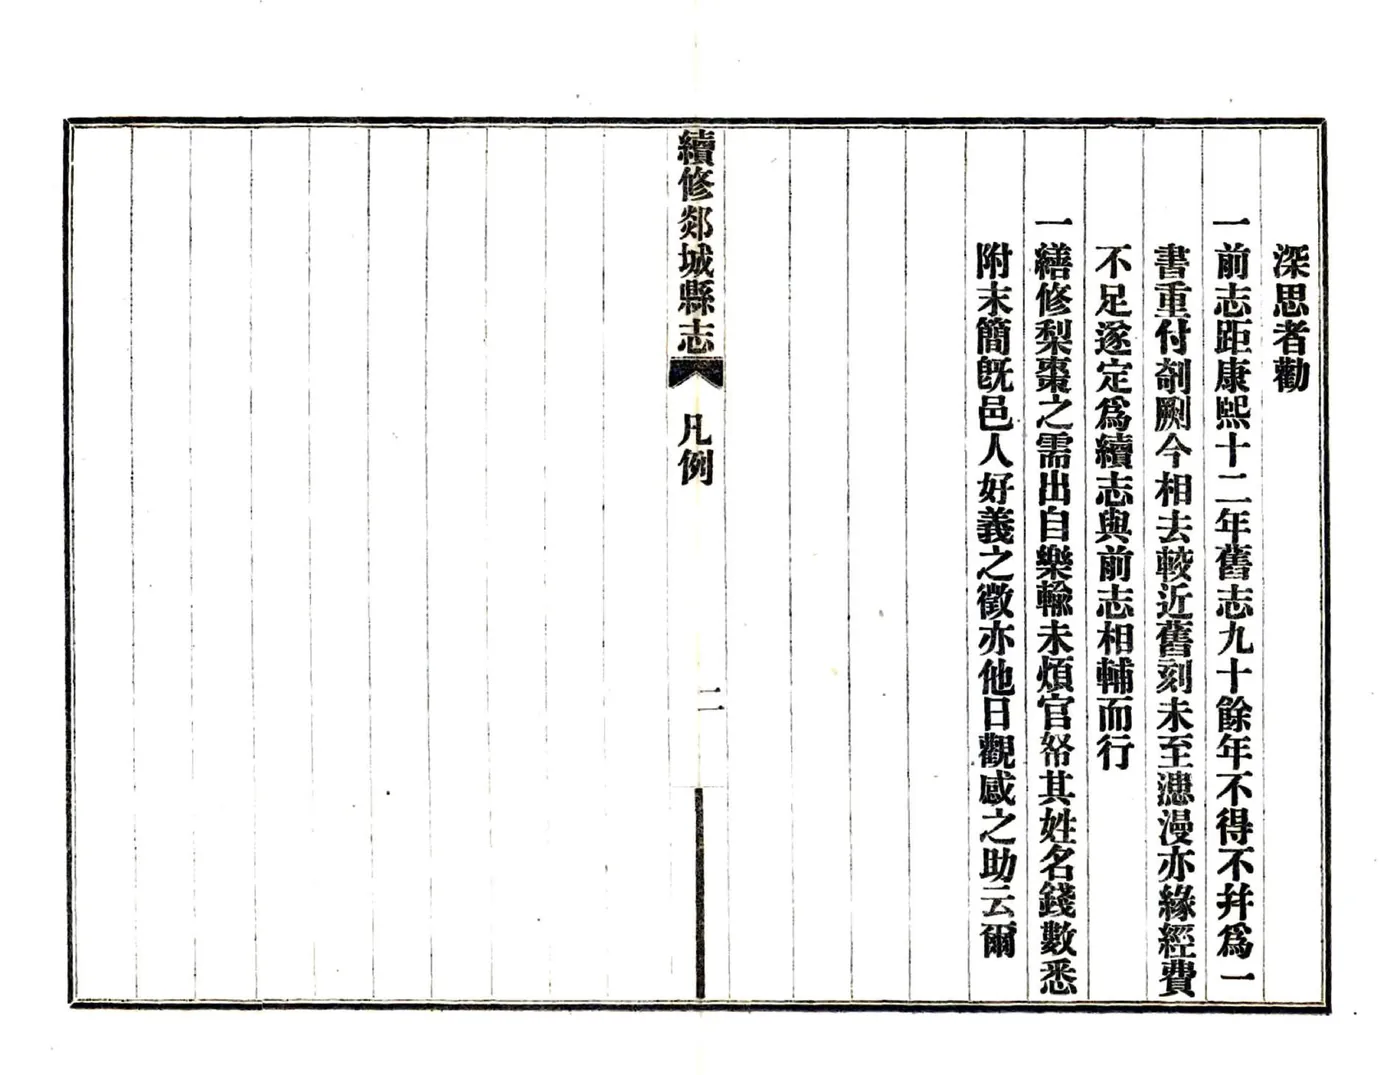 深思者勸
一前志距康熙十二年舊志九十餘年不得不幷爲一
書重付剞劂今相去較近舊刻未至漶漫亦緣經費
不足遂定爲續志與前志相輔而行
一繕修梨棗之需出自樂輸未煩官帑其姓名錢數悉
附末簡旣邑人好義之徵亦他日觀感之助云爾
續修郯城縣志
凡例
二